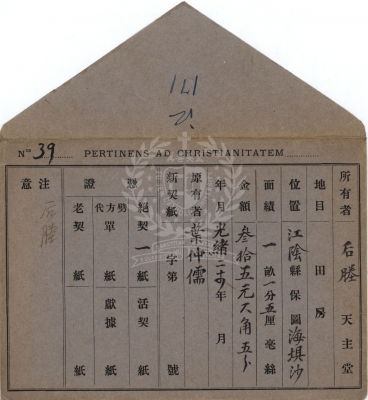 Nᵒ 39 PERTINENS AD CHRISTIANITATEM
所有者 后塍 天主堂
地目 田 房
位置 江陰縣 保 圖 海垻沙
面績 一畝一分五厘 毫 絲
金額 叁拾五元六角五分
年月 光緒二十 年 月
原有者 葉仲儒
新契紙 字第 號
憑證
絕契 一 紙 活契 紙
代方單 紙 獻據 紙
老契 紙 紙
注意
后塍